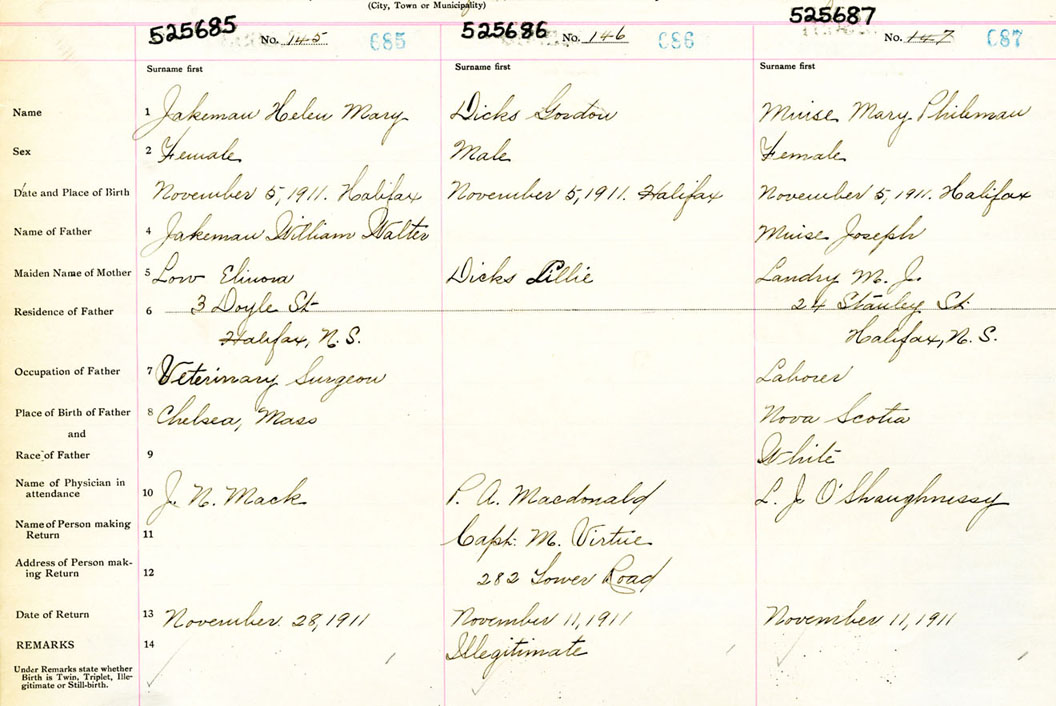 (City, Town or Municipality)
525685 No. 145 685
525686 No. 146 686
525687 No. 147 687
Surname first Surname first Surname first
Name 1 Jakeman Helen Mary Dicks Gordon Muise Mary Phileman
Sex 2 Female Male Female
Date and Place of Birth 3 November 5, 1911. Halifax November 5, 1911. Halifax November 5, 1911. Halifax
Name of Father 4 Jakeman William Walter Muise Joseph
Maiden Name of Mother 5 Low Elinora Dicks Lillie Landry M. J.
Residence of Father 6 3 Doyle St 24 Stanley St.
Halifax, N. S. Halifax, N. S.
Occupation of Father 7 Veterinary Surgeon Laborer
Place of Birth of Father 8 Chelsea, Mass Nova Scotia
and
Race of Father 9 White
Name of Physician in attendance 10 J. N. Mack P. A. Macdonald L. J. O'Shaughnessy
Name of Person making Return 11 Capt. M. Virtue
Address of Person mak-
ing Return 12 282 Tower Road
Date of Return 13 November 28, 1911 November 11, 1911 November 11, 1911
REMARKS 14 Illegitimate
Under Remarks state whether
Birth is Twin, Triplet, Ille-
gitimate or Still-birth.